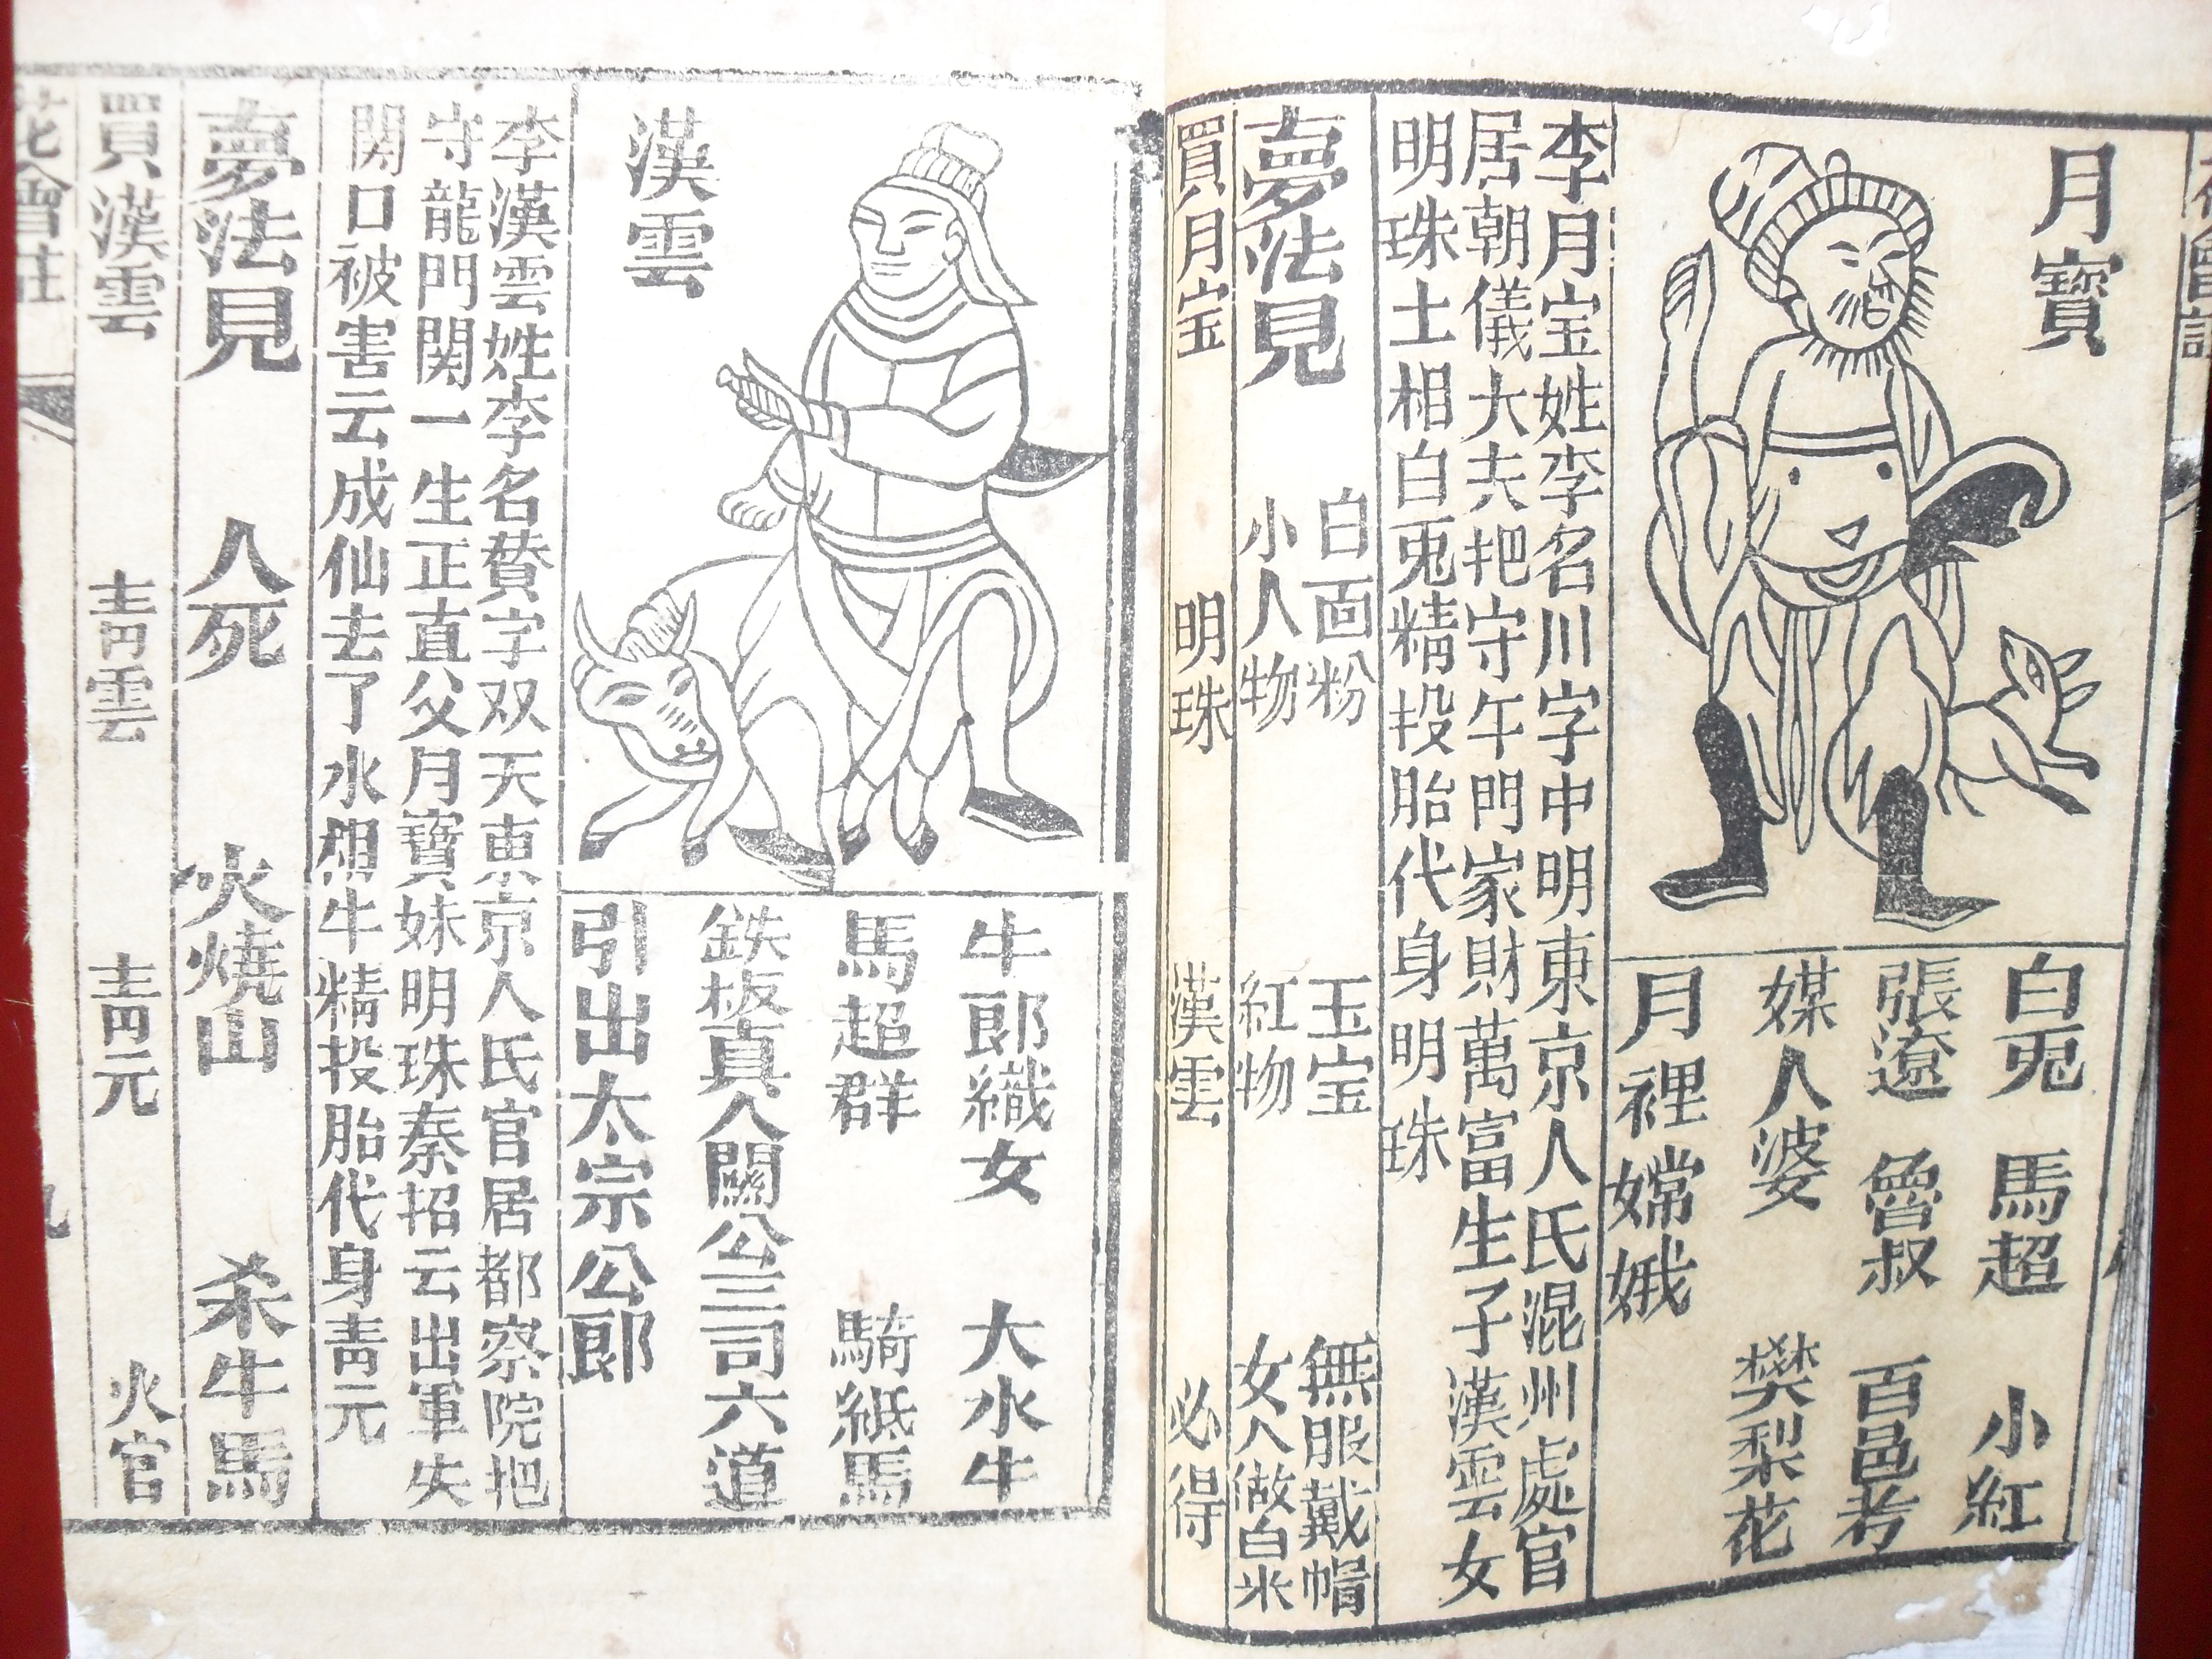 月寶
白兎 馬超 小紅
張遼 魯叔 百邑考
媒人婆 樊梨花
月裡嫦娥
李月宝姓李名川字中明東京人氏混州處官
居朝儀大夫把守午門家財萬富生子漢雲女
明珠土相白兎精投胎代身明珠
夢法見 白面粉 玉宝 無服戴帽
小人物 紅物 女人做白米
買月宝 明珠 漢雲 必得
漢雲
牛郎織女 大水牛
馬超群 騎紙馬
鉄板真人關公三司六道
引出太宗公郎
李漢雲姓李名賛字双天東京人氏官居都察院把
守龍門関一生正直父月寶妹明珠秦招云出軍失
関口被害云成仙去了水相牛精投胎代身青元
夢法見 人死 火燒山 杀牛馬
買漢雲 青雲 青元 火官
花會註